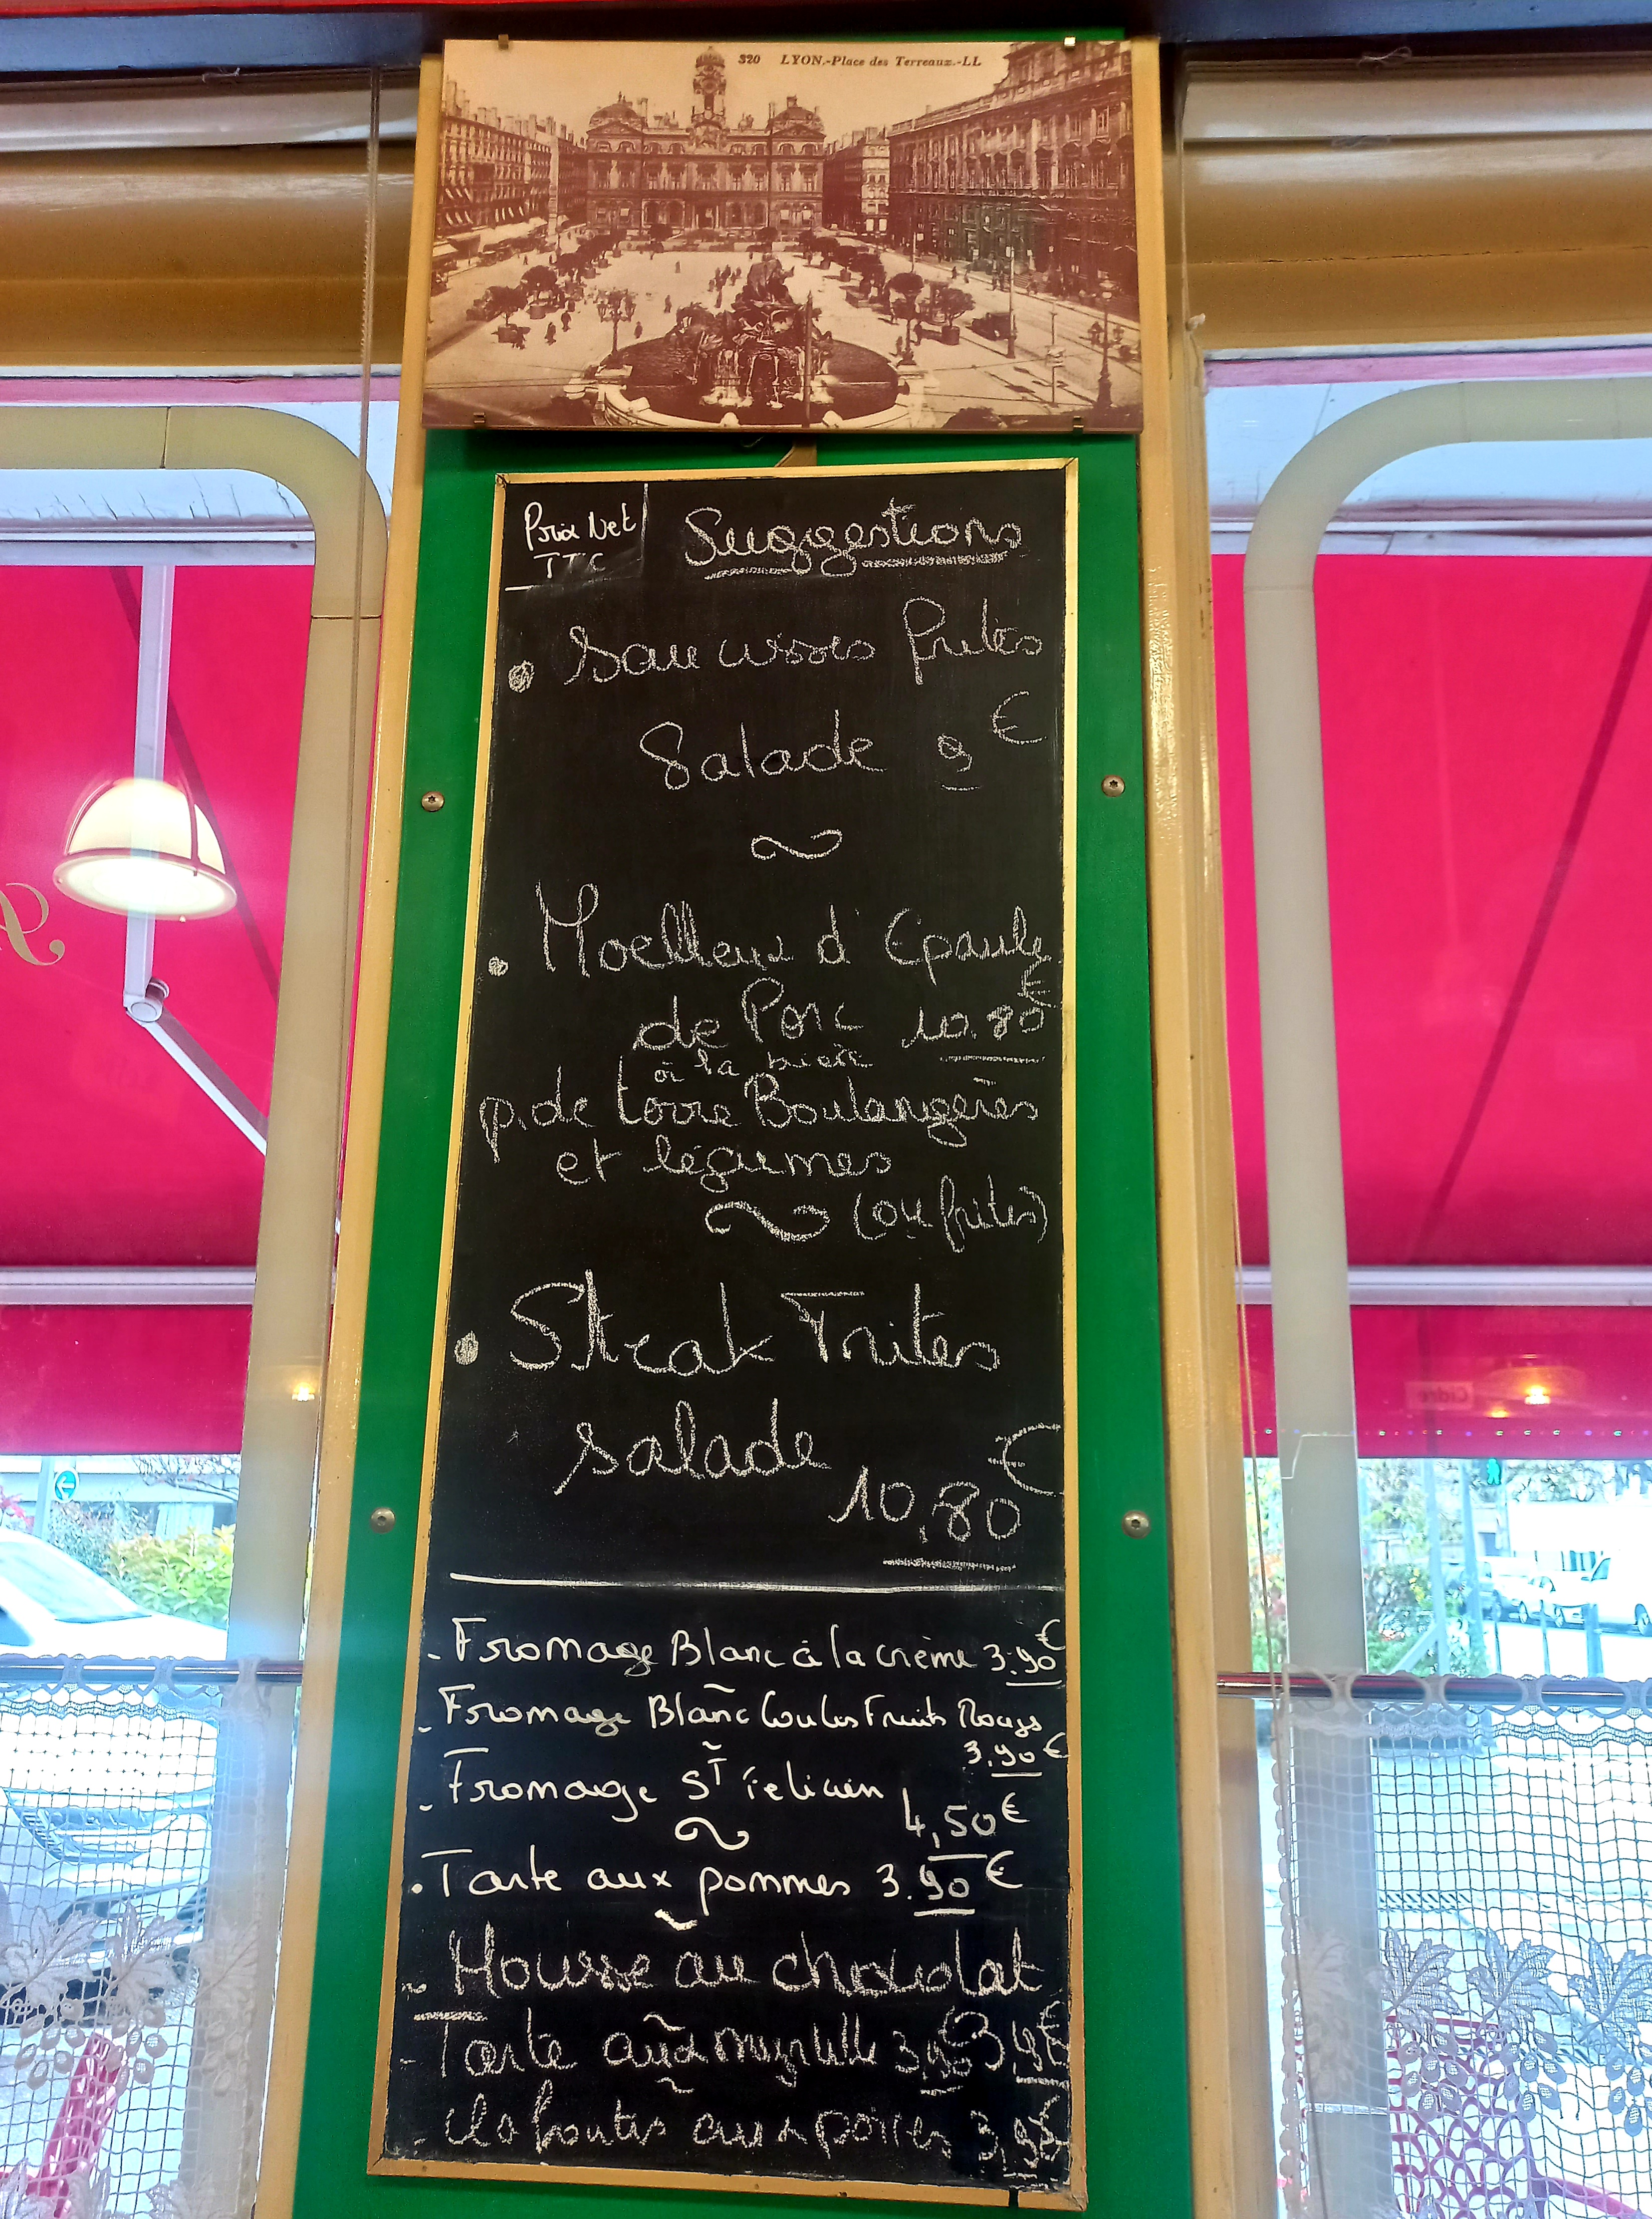 320 LYON.-Place des Terreaux.-LL
Prix Net
TTC
Suggestions
• Saucisses frites
Salade 9 €
• Moelleux d'Epaule
de Porc 10.80 €
à la bière
p. de terre Boulangères
et légumes
(ou frites)
• Steak Frites
salade
10,80 €
- Fromage Blanc à la crème 3.90 €
- Fromage Blanc Coulis Fruits Rouges
3.90 €
- Fromage St Felicien
4,50 €
• Tarte aux pommes 3.90 €
~ Mousse au chocolat
- Tarte aux myrtille 3,90 € 3,90 €
- clafoutis aux poires 3,90 €